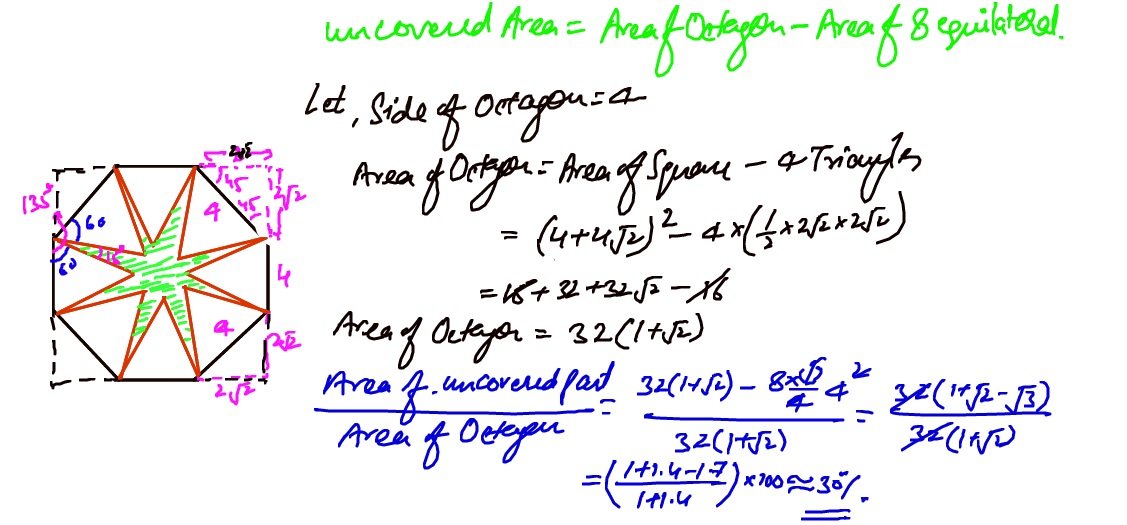 uncovered Area = Area of Octagon - Area of 8 equilateral.
Let, Side of Octagon = 4
Area of Octagon = Area of Square - 4 Triangles
= (4+4√2)² - 4×(1/2×2√2×2√2)
= 16 + 32 + 32√2 - 16
Area of Octagon = 32(1+√2)
Area of uncovered part / Area of Octagon = (32(1+√2) - 8×√3/4 4²) / 32(1+√2) = 32(1+√2-√3) / 32(1+√2)
= ((1+1.4-1.7)/(1+1.4))×100 ≈ 30%.
2√2
45
2√2
135°
60
4
45
15°
60
4
4
2√2
2√2